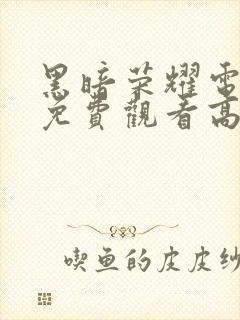 黑暗荣耀電
免費觀看高
喫鱼的皮皮纱